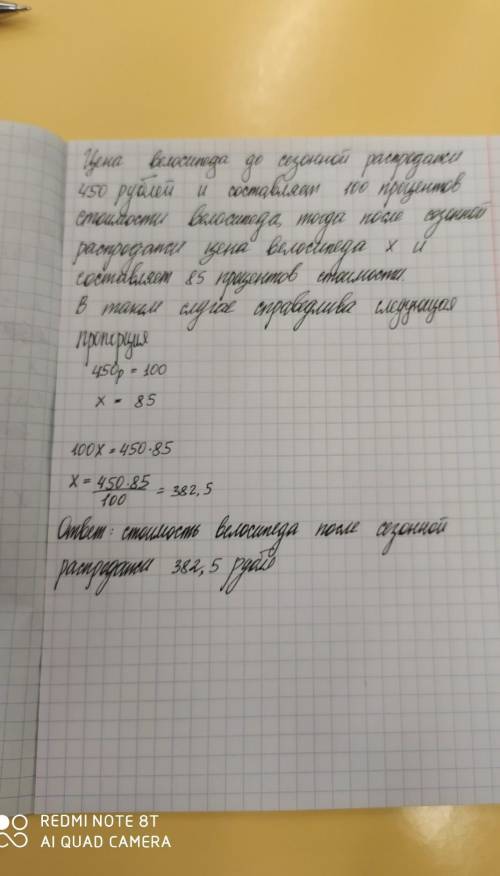 Цена велосипеда до сезонной распродажи
450 рублей и составляет 100 процентов
стоимости велосипеда, тогда после сезонной
распродажи цена велосипеда x и
составляет 85 процентов стоимости.
В таком случае справедлива следующая
пропорция
450р = 100
x = 85
100x = 450·85
x = 450·85/100 = 382,5
Ответ: стоимость велосипеда после сезонной
распродажи 382,5 рубля
REDMI NOTE 8T
AI QUAD CAMERA